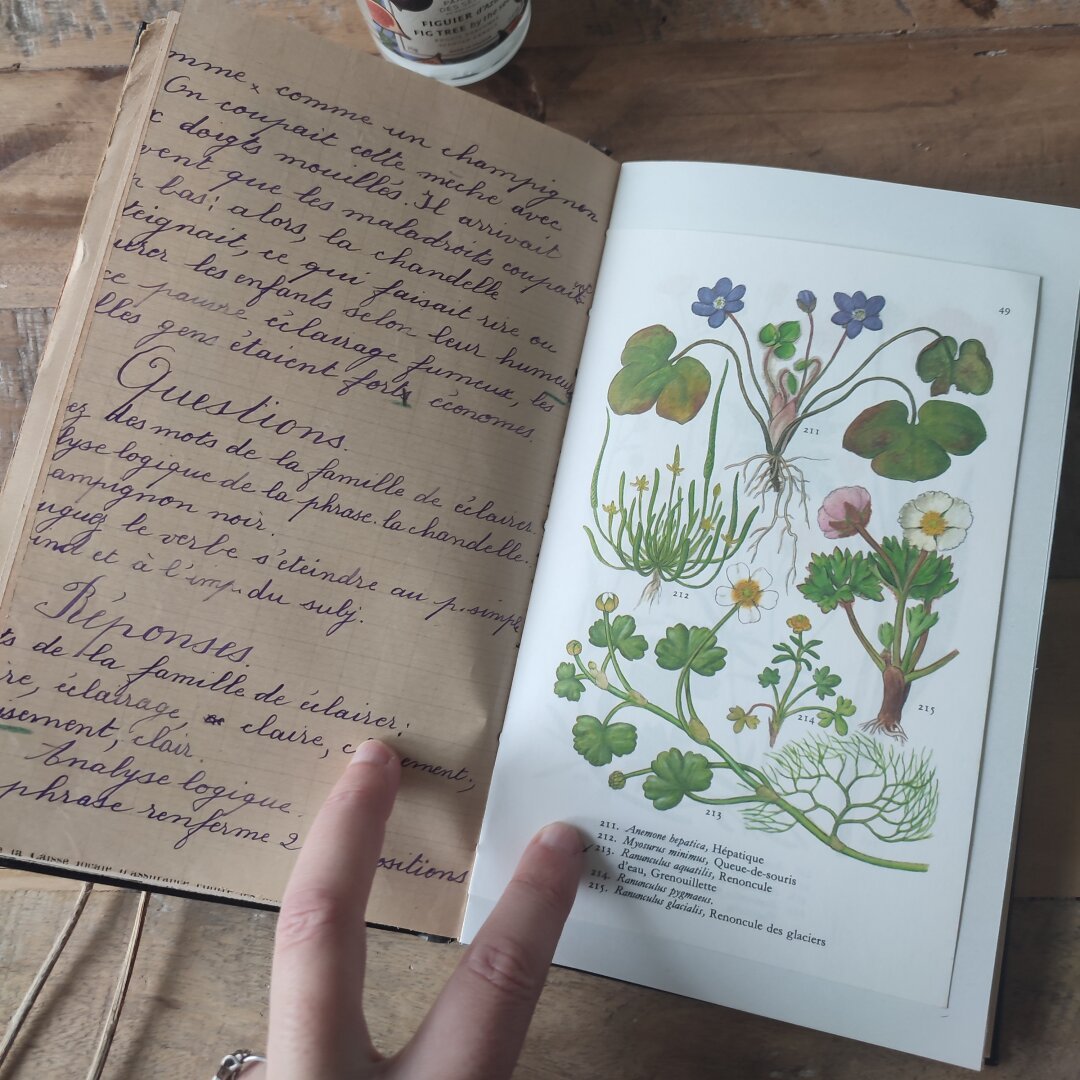 FIGUIER d'A
FIG TREE by the
mme, comme un champignon
On coupait cette mèche avec
x doigts mouillés. Il arrivait
vent que les maladroits coupait
bas; alors, la chandelle
teignait, ce qui faisait rire ou
urer les enfants selon leur humeur
ce pauvre éclairage fumeux, les
lles gens étaient forts économes.
Questions.
ez des mots de la famille de éclairer.
lyse logique de la phrase. la chandelle..
ampignon noir.
uguez le verbe s'éteindre au p. simple
ind et à l'imp. du subj.
Réponses.
ts de la famille de éclairer:
re, éclairage, claire, ement,
sement, clair.
Analyse logique.
phrase renferme 2 ositions
49
211
212
215
214
213
211. Anemone hepatica, Hépatique
212. Myosurus minimus, Queue-de-souris
213. Ranunculus aquatilis, Renoncule
d'eau, Grenouillette
214. Ranunculus pygmaeus.
215. Ranunculus glacialis, Renoncule des glaciers